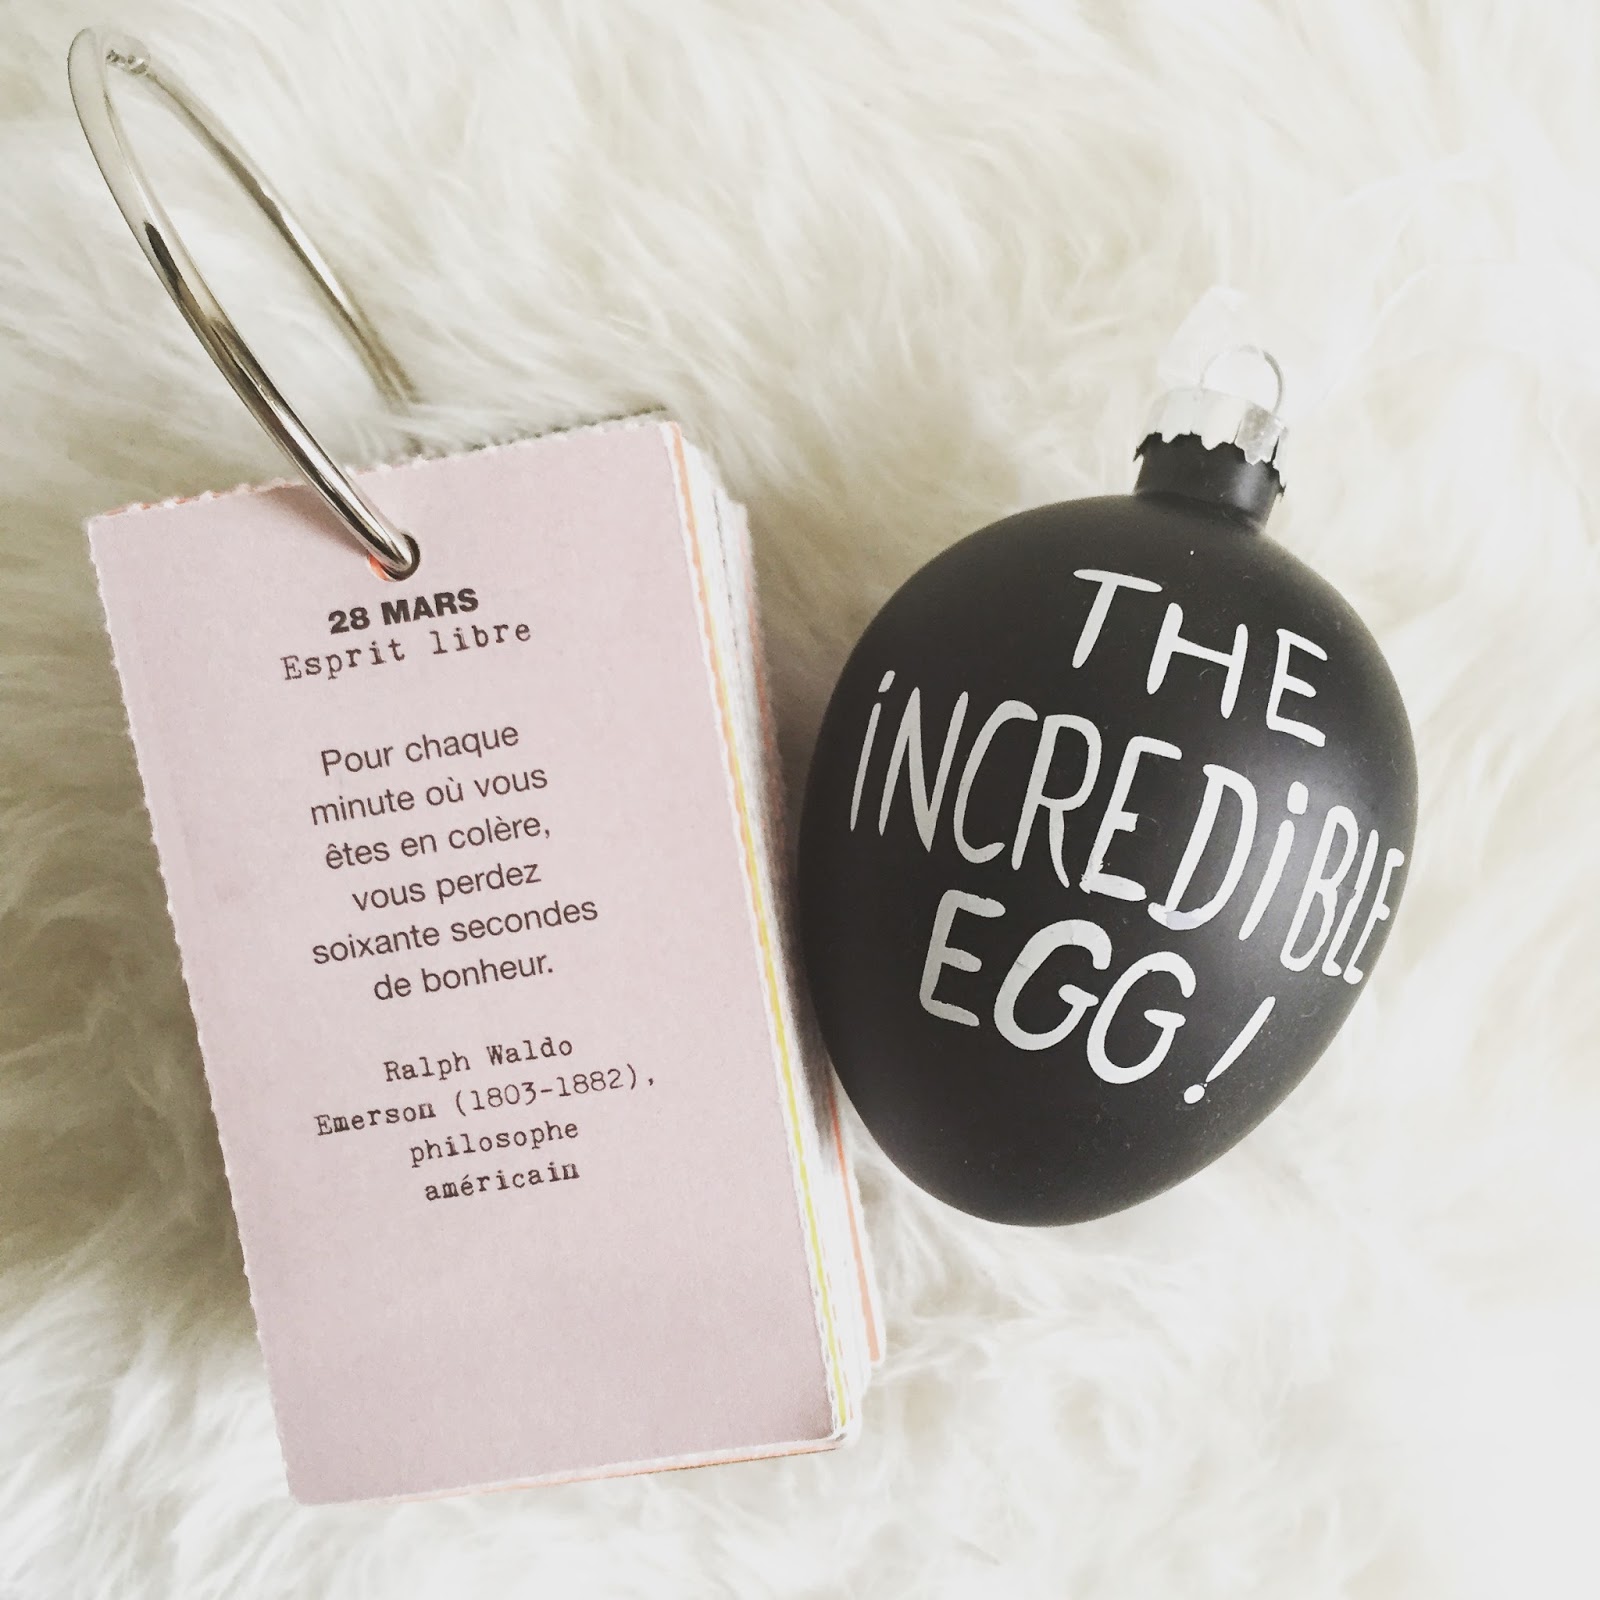 28 MARS
Esprit libre
Pour chaque
minute où vous
êtes en colère,
vous perdez
soixante secondes
de bonheur.
Ralph Waldo
Emerson (1803-1882),
philosophe
américain
THE
iNCREDiBLE
EGG!